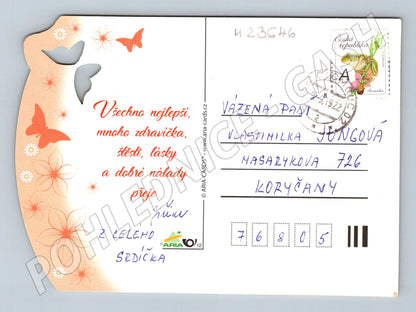 M 23646
Česká
republika
A
Všechno nejlepší,
mnoho zdravíčka,
štěstí, lásky
a dobré nálady
přeje
Z CELÉHO
SRDÍČKA
© ARIA-CARDS® • www.aria-cards.cz
ARIA
VÁŽENÁ PANÍ
VLASTIMILKA JUNGOVÁ
MASARYKOVA 726
KORYČANY
7 6 8 0 5
POHLEDNICE - GACH